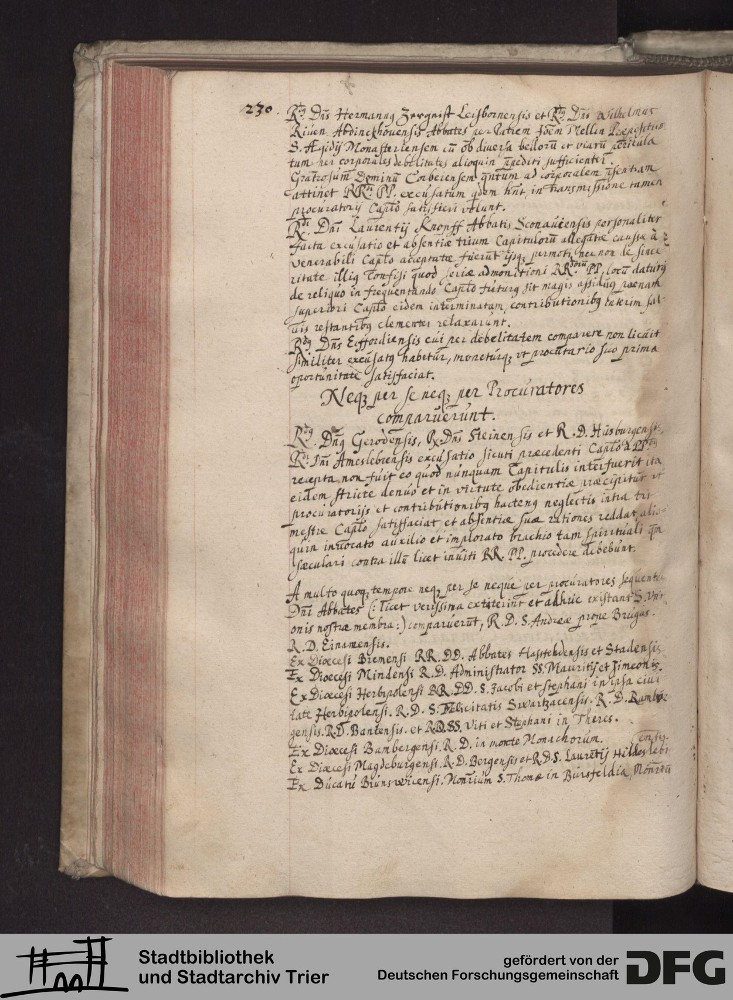 230.
R.dus Dns Hermannus Zurgeist Leisbornensis et R.dus Dns Wilhelmus
Riven Abdinckhovensis Abbates per Patrem Mellin Praepositus
S. Ægidij Monasteriensem cū ob diversa bellorū et viarū pericula
tum hec corporales debilitates alioquin sufficienter.
Gratiosum Dominū Corbeiensem qntum ad corporalem psentiam
attinet RR.di PP. excusatum qdem hnt, in transmissione tamen
procuratorij Caplo satisfieri volunt.
R.di Dni Laurentij Knopff Abbatis Sconauiensis personaliter
facta excusatio et absentiæ trium Capitulorū allegatæ causæ à
venerabili Caplo acceptatæ fuerūt ijsq; permoti nec non de since
ritate illiq confisi quod seriæ admonitioni RR.dorum PP. locū daturq
de reliquo in frequentando Caplo futurq sit magis assiduq pœnam
superiori Caplo eidem interminatam, contributionibq tn̄ interim sal
uis restantibq clementer relaxarunt.
R.dus Dns Erffordiensis cui per debelitatem comparere non licuit
similiter excusatq habetur, moneturq; vt procuratorio suo prima
oportunitate satisfaciat.
Neq; per se neq; per Procuratores
comparuerunt.
R.dus Dnq Gerodensis, R. Dns Steinensis et R. D. Husburgensis.
R.di Dni Ameslebiensis excusatio sicuti præcedenti Caplo à PP.bq
recepta non fuit eo quod nunquam Capitulis interfuerit ita
eidem stricte denuo et in virtute obedientiæ præcipitur vt
procuratorijs et contributionibq hactenq neglectis intra tri
mestre Caplo satisfaciat et absentiæ suæ rationes reddat, alio
quin invocato auxilio et implorato brachio tam spirituali qm
sæculari contra illū licet inviti RR. PP. procedere debebunt.
A multo quoq; tempore neq; per se neque per procuratores sequentes
Dni Abbates (: licet verissima extiterint et adhuc existant S. Vni
onis nostræ membra :) comparuerūt, R. D. S. Andreæ prope Brugas.
R. D. Einamensis.
Ex Diœcesi Bremensi RR. DD. Abbates Hassefeldensis et Stadensis
Ex Diœcesi Mindensi R. D. Administrator SS. Mauritij et Simeonis.
Ex Diœcesi Herbipolensi RR. DD. S. Jacobi et Stephani in ipsa ciui
tate Herbipolensi. R. D. S. Felicitatis Swartzacensis. R. D.
gensis. R. D. Bantensis. et R. D. SS. Viti et Stephani in Theres.
Ex Diœcesi Bambergensi. R. D. in monte Monachorum.
Ex Diœcesi Magdeburgensi. R. D. Bergensis et R. D. S. Laurētij Hildeslebi
ensis.
Ex Ducatu Brunswicensi. Monrium S. Thomæ in Bursfeldia,
Stadtbibliothek
und Stadtarchiv Trier
gefördert von der
Deutschen Forschungsgemeinschaft
DFG